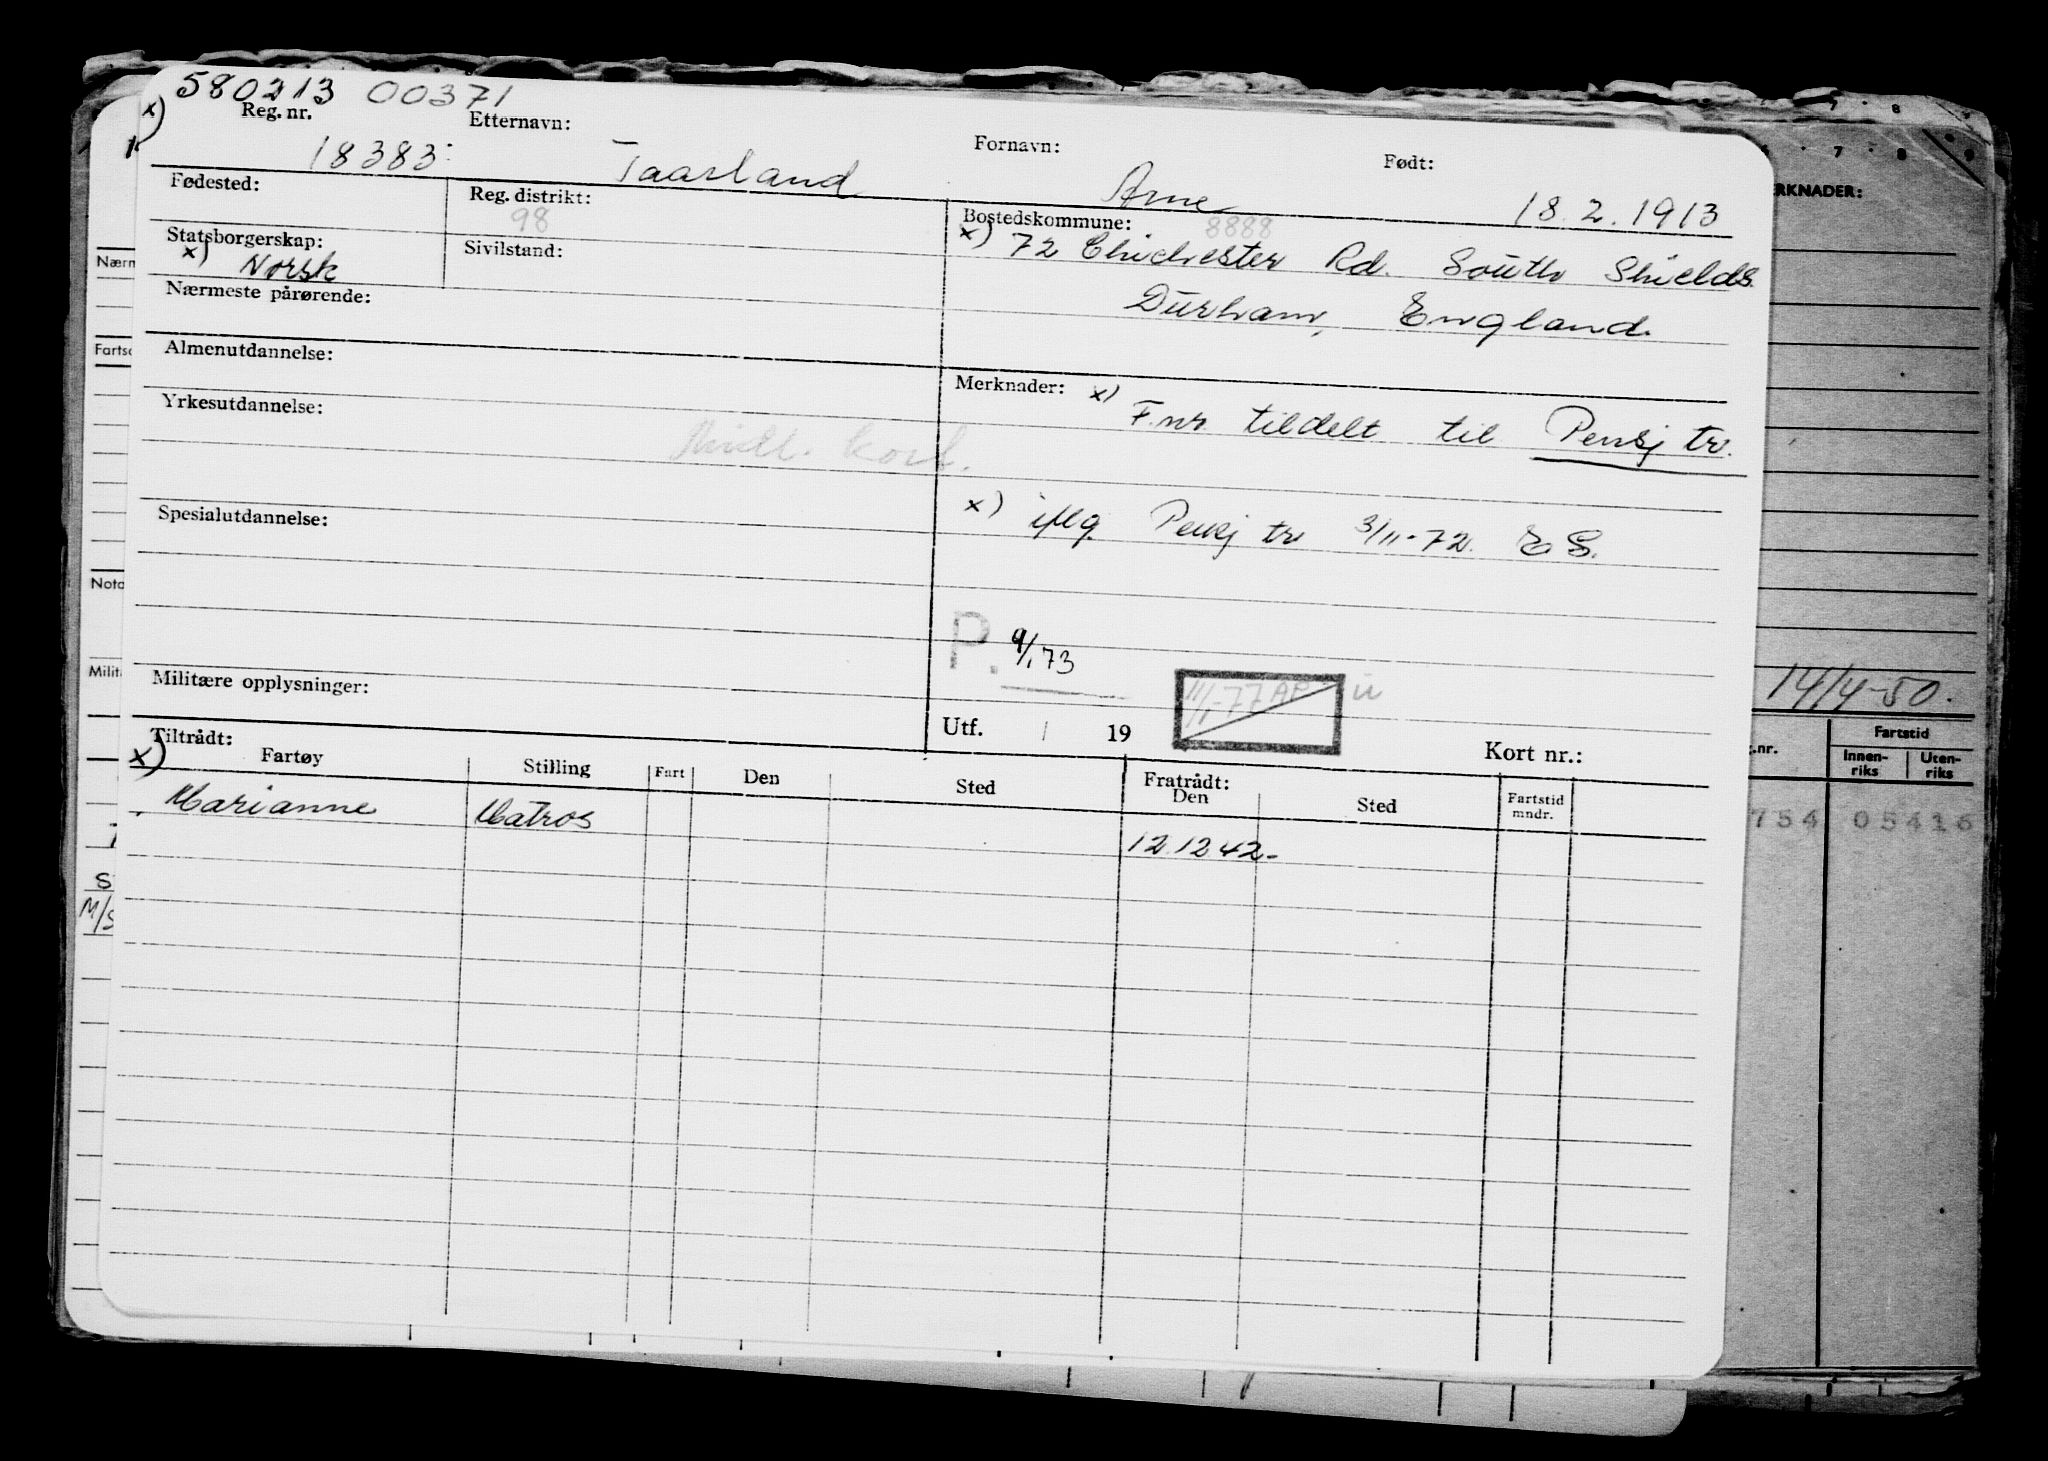 580213 00371
x) Reg. nr. Etternavn: Fornavn: Født:
18383 Taarland Arne 18.2.1913
Fødested: Reg. distrikt: Bostedskommune:
98 8888
Statsborgerskap: Sivilstand: x) 72 Chichester Rd. South Shields
x) Norsk Durham, England.
Nærmeste pårørende:
Almenutdannelse:
Merknader: x) F.nr. tildelt til Pensj tr.
Yrkesutdannelse:
Midl. Kort.
Spesialutdannelse: x) iflg. Pensj tr 3/11-72. E S.
P. 9/1 73
Militære opplysninger: 11/1-77 AP
Utf. / 19 Kort nr.:
x) Tiltrådt: Fratrådt:
Fartøy Stilling Fart Den Sted Den Sted Fartstid mndr.
Marianne Matros 12.12.42-
RKNADER:
7 8 9
14/4-50.
.nr. Fartstid
Innen-riks Uten-riks
754 05416
Nærm
Fartsc
Nota
Milit
S
M/S